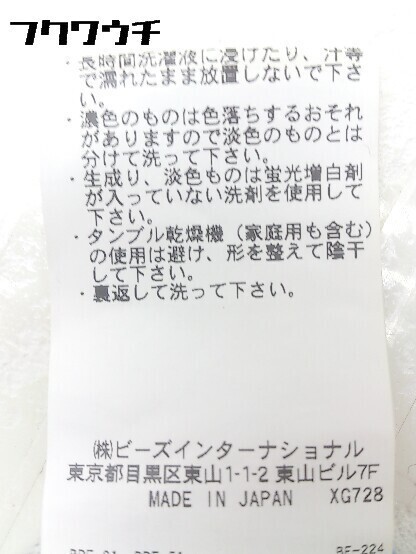 フクワウチ
・長時間洗濯液に浸けたり、汗等
で濡れたまま放置しないで下さ
い。
・濃色のものは色落ちするおそれ
がありますので淡色のものとは
分けて洗って下さい。
・生成り、淡色ものは蛍光増白剤
が入っていない洗剤を使用して
下さい。
・タンブル乾燥機（家庭用も含む）
の使用は避け、形を整えて陰干
して下さい。
・裏返して洗って下さい。
㈱ビーズインターナショナル
東京都目黒区東山1-1-2 東山ビル7F
MADE IN JAPAN XG728
BE-224